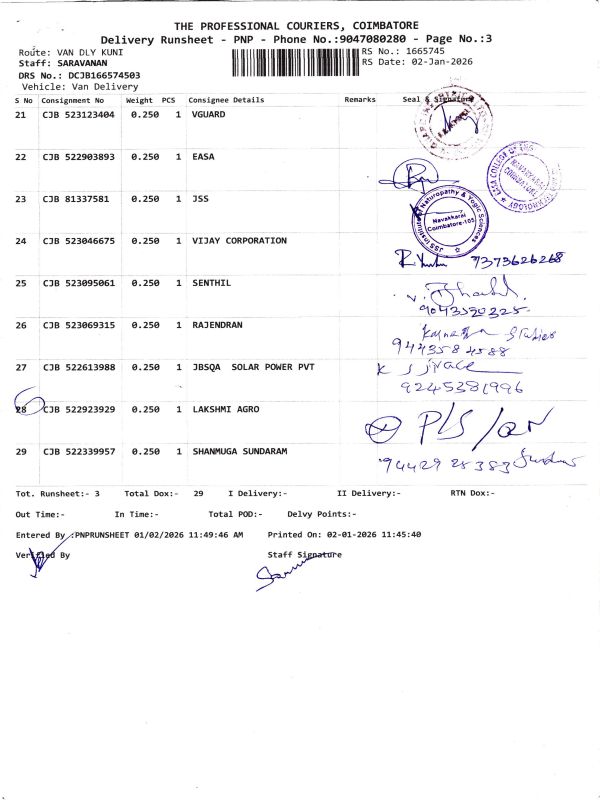 THE PROFESSIONAL COURIERS, COIMBATORE
Delivery Runsheet - PNP - Phone No.:9047080280 - Page No.:3
Route: VAN DLY KUNI
RS No.: 1665745
Staff: SARAVANAN
RS Date: 02-Jan-2026
DRS No.: DCJB166574503
Vehicle: Van Delivery
S No Consignment No Weight PCS Consignee Details Remarks Seal & Signature
21 CJB 523123404 0.250 1 VGUARD
22 CJB 522903893 0.250 1 EASA
NAVAKKARAI
COIMBATORE
23 CJB 81337581 0.250 1 JSS
JSS Institute of Naturopathy & Yogic Sciences
Navakkarai
Coimbatore-105
24 CJB 523046675 0.250 1 VIJAY CORPORATION
7373626268
25 CJB 523095061 0.250 1 SENTHIL
9043520325
26 CJB 523069315 0.250 1 RAJENDRAN
9443584588
27 CJB 522613988 0.250 1 JBSQA SOLAR POWER PVT
9245381996
28 CJB 522923929 0.250 1 LAKSHMI AGRO
29 CJB 522339957 0.250 1 SHANMUGA SUNDARAM
Tot. Runsheet:- 3 Total Dox:- 29 I Delivery:- II Delivery:- RTN Dox:-
Out Time:- In Time:- Total POD:- Delvy Points:-
Entered By :PNPRUNSHEET 01/02/2026 11:49:46 AM Printed On: 02-01-2026 11:45:40
Verified By Staff Signature